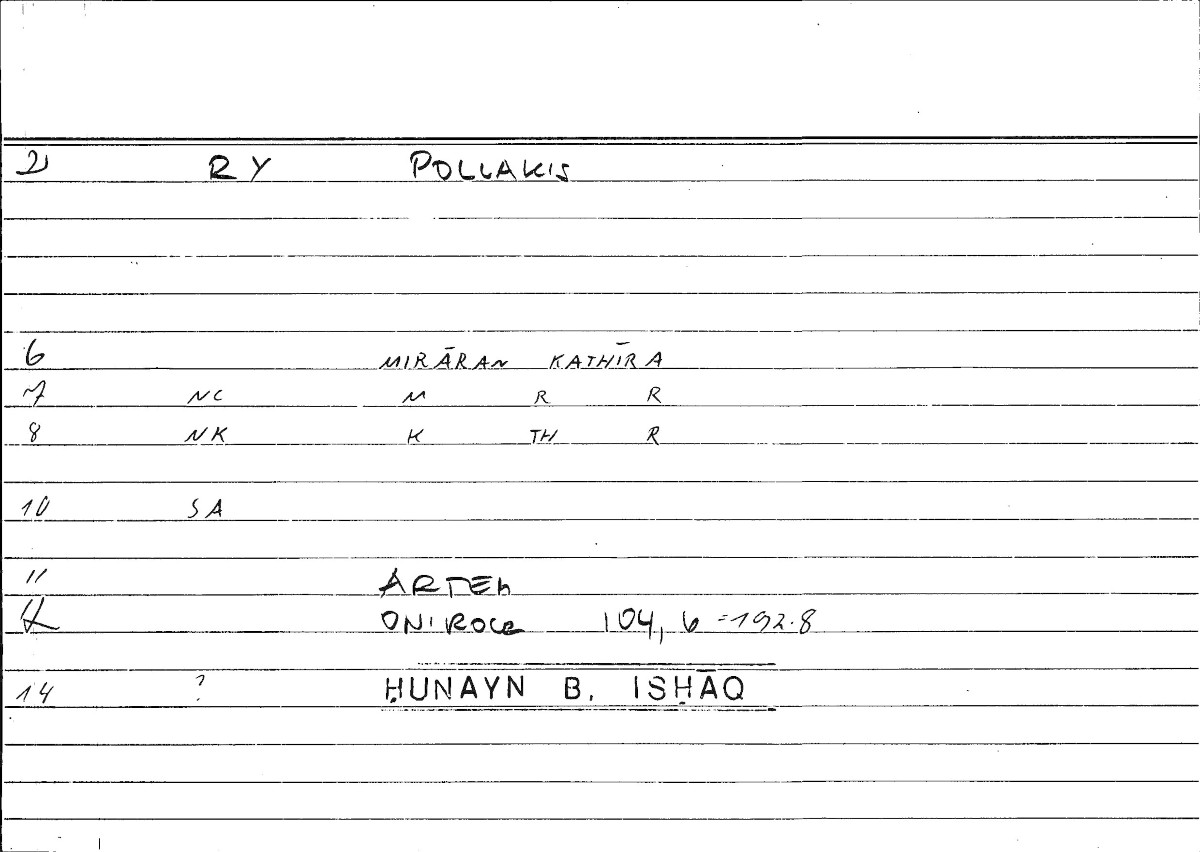 2 RY POLLAKIS
6 MIRĀRAN KATHĪRA
7 NC M R R
8 NK K TH R
10 SA
11 ARTEM
12 ONIROCR 104, 6 = 192.8
14 ? ḤUNAYN B. ISḤĀQ